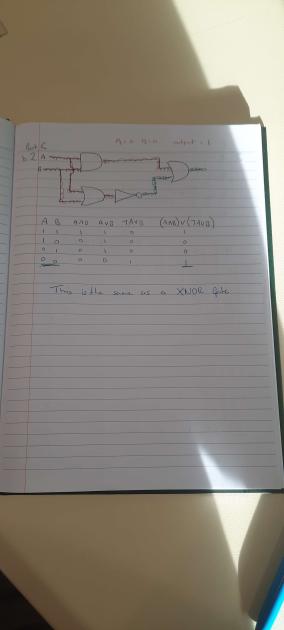 Part C
A=0 B=0 output = 1
b.2 A
B
A B A∧B A∨B ¬A∨B (A∧B)∨(¬A∨B)
1 1 1 1 0 1
1 0 0 1 0 0
0 1 0 1 0 0
0 0 0 0 1 1
This is the same as a XNOR gate